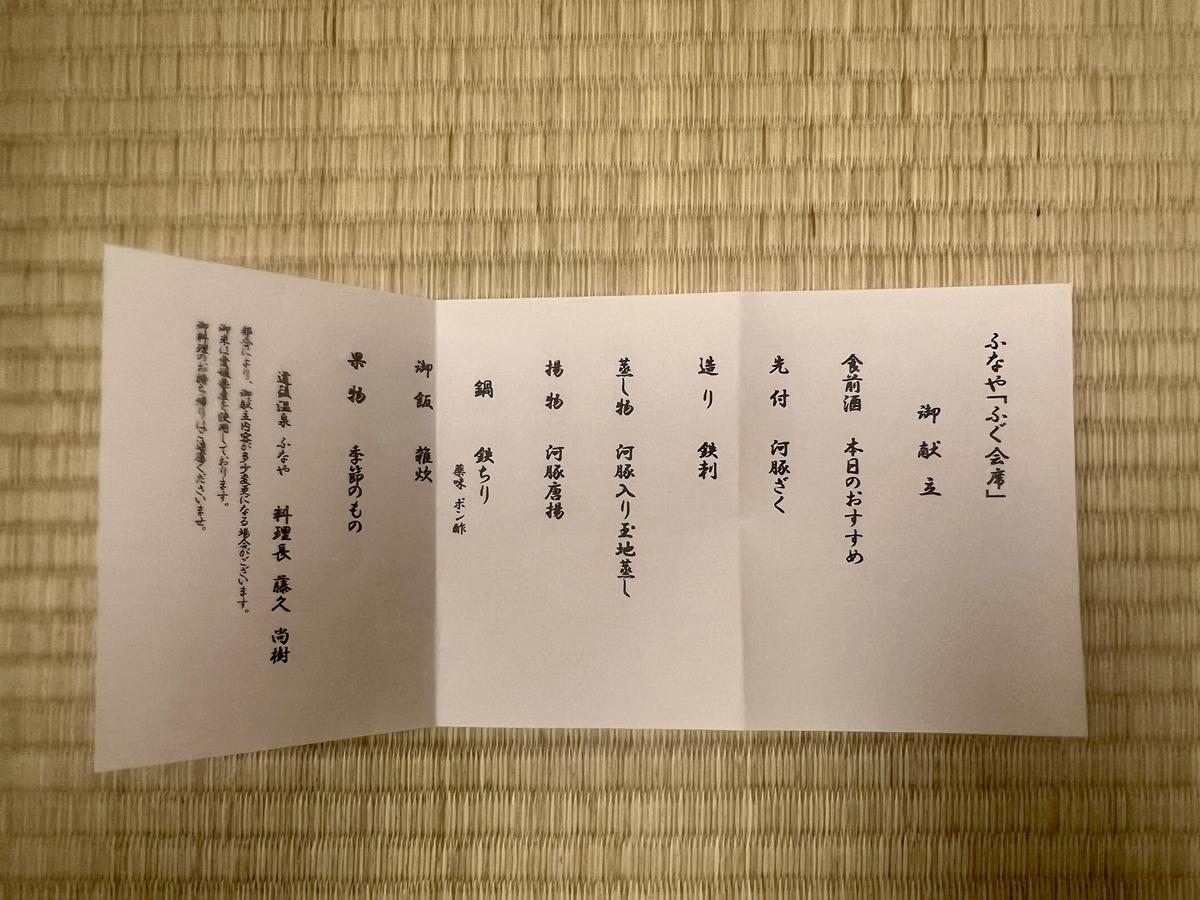 ふなや「ふぐ会席」
御献立
食前酒 本日のおすすめ
先付 河豚ざく
造り 鉄刺
蒸し物 河豚入り玉地蒸し
揚物 河豚唐揚
鍋 鉄ちり
薬味 ポン酢
御飯 雑炊
果物 季節のもの
道後温泉 ふなや 料理長 藤久 尚樹
都合により、御献立内容が多少変更になる場合がございます。
御米は愛媛県産を使用しております。
御料理のお持ち帰りはご遠慮くださいませ。